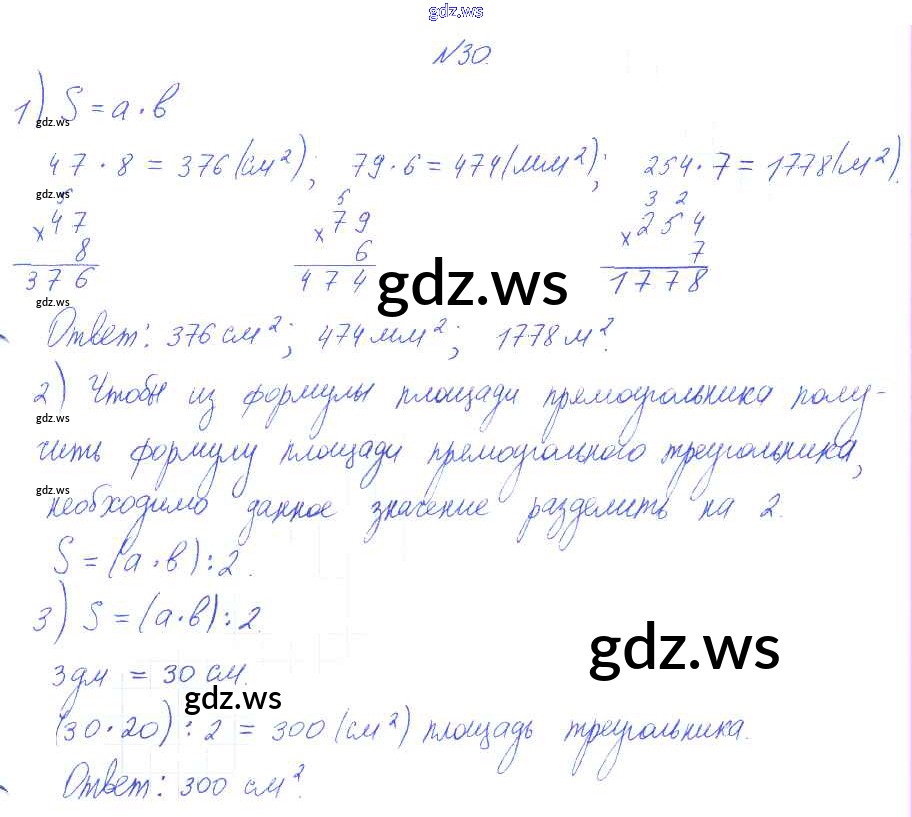 gdz.ws
№30.
1) S = a · b
gdz.ws
47 · 8 = 376 (см²); 79 · 6 = 474 (мм²); 254 · 7 = 1778 (м²).
gdz.ws
5 5 3 2
× 47 × 79 × 254
8 6 7
376 474 1778
gdz.ws
gdz.ws
Ответ: 376 см²; 474 мм²; 1778 м².
2) Чтобы из формулы площади прямоугольника полу-
gdz.ws
чить формулу площади прямоугольного треугольника,
gdz.ws
необходимо данное значение разделить на 2.
S = (a · b) : 2.
3) S = (a · b) : 2.
gdz.ws
3 дм = 30 см.
gdz.ws
(30 · 20) : 2 = 300 (см²) площадь треугольника.
Ответ: 300 см².